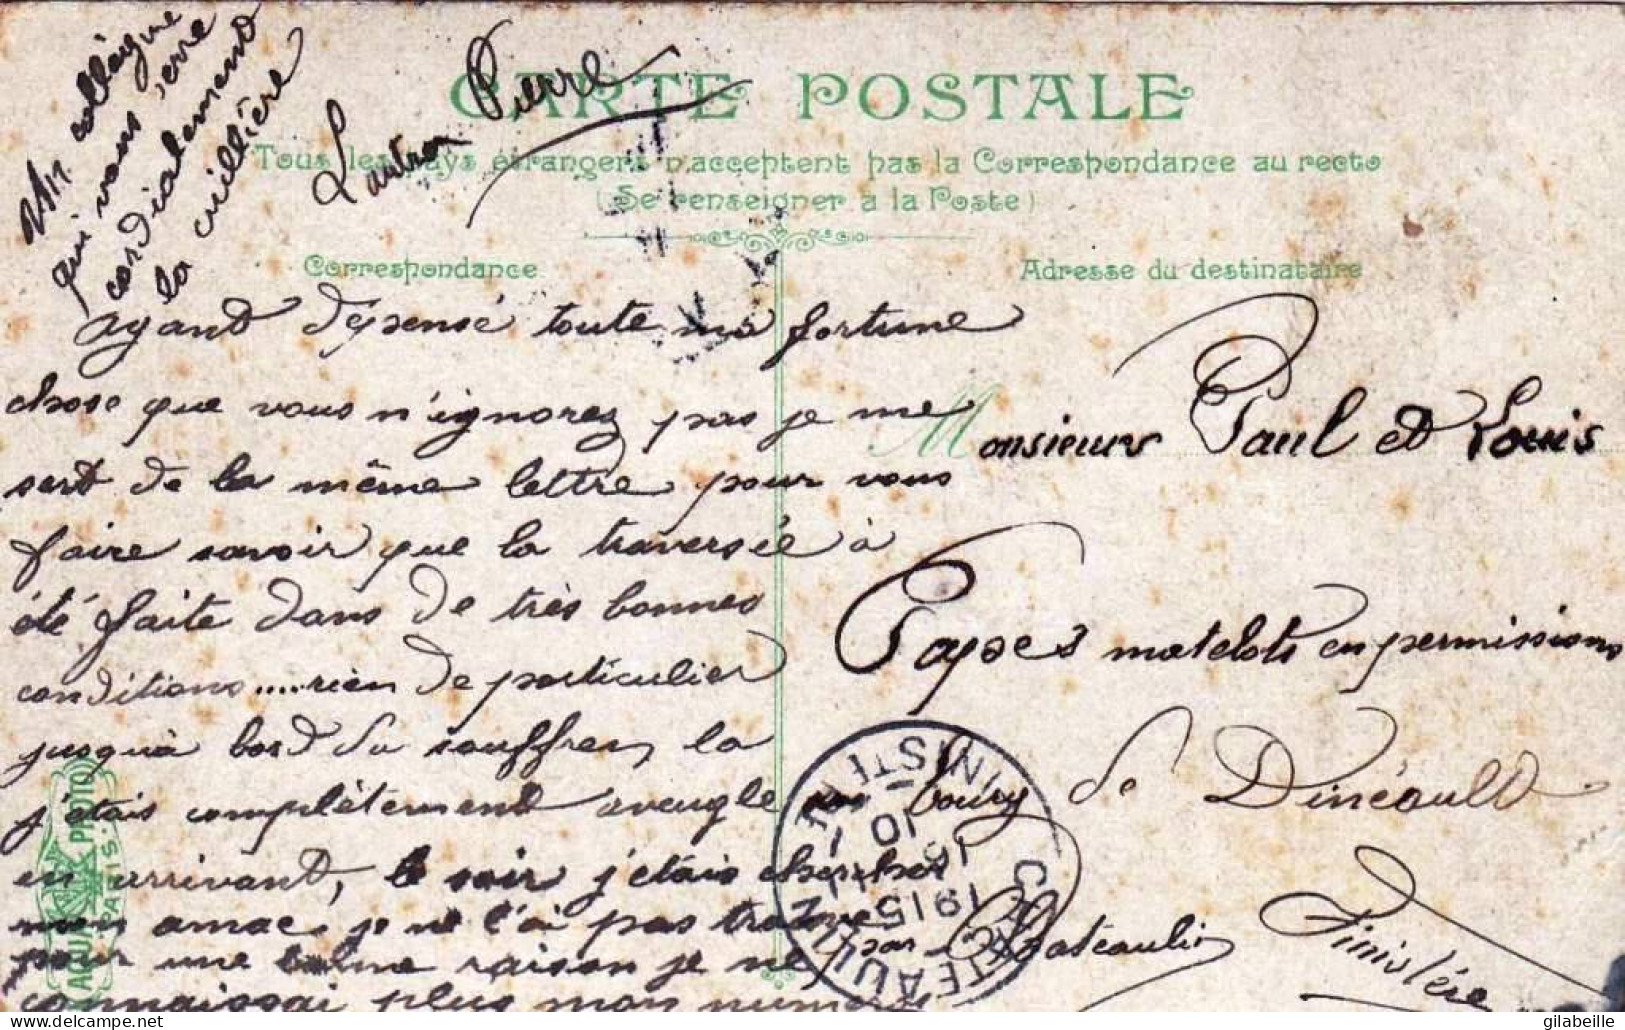 Un collèigue
qui vous serre
cordialement
la cuillère
Lautron Pierre
CARTE POSTALE
Tous les pays étrangers n'acceptent pas la Correspondance au recto
(Se renseigner à la Poste)
Correspondance
Adresse du destinataire
Ayant dépensé toute ma fortune
chose que vous n'ignorez pas je me
sert de la même lettre pour vous
faire savoir que la traversée à
été faite dans de très bonnes
conditions.....rien de particulier
jusqu'à bord du souffren, la
j'étais complètement aveugle
en arrivant, le soir j'étais chercher
mon amac, je ne l'ai pas trouver
pour une bonne raison je ne
connaissai plus mon numéro
Monsieurs Paul et Louis
Papes matelots en permissions
bourg de Dinéault
par Chateaulin
Finistère
CHATEAULIN
FINISTERE
10
1915
AQUA PHOTO
PARIS
gilabeille